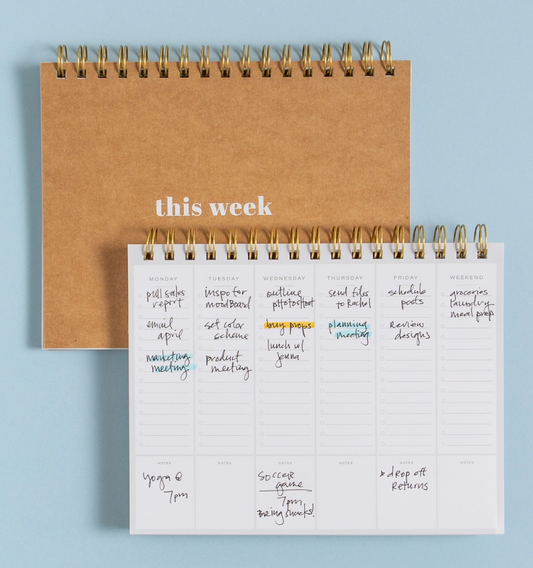 this week
MONDAY
pull sales
report
email
april
marketing
meeting
TUESDAY
inspo for
moodBoard
set color
scheme
product
meeting
WEDNESDAY
outline
photoshoot
buy props
lunch w/
jenna
THURSDAY
send files
to Rachel
planning
meeting
FRIDAY
schedule
posts
Review
designs
WEEKEND
groceries
laundry
meal prep
NOTES
yoga @
7pm
NOTES
NOTES
SOCCER
game
7pm
Bring snacks!
NOTES
NOTES
* drop off
Returns
NOTES